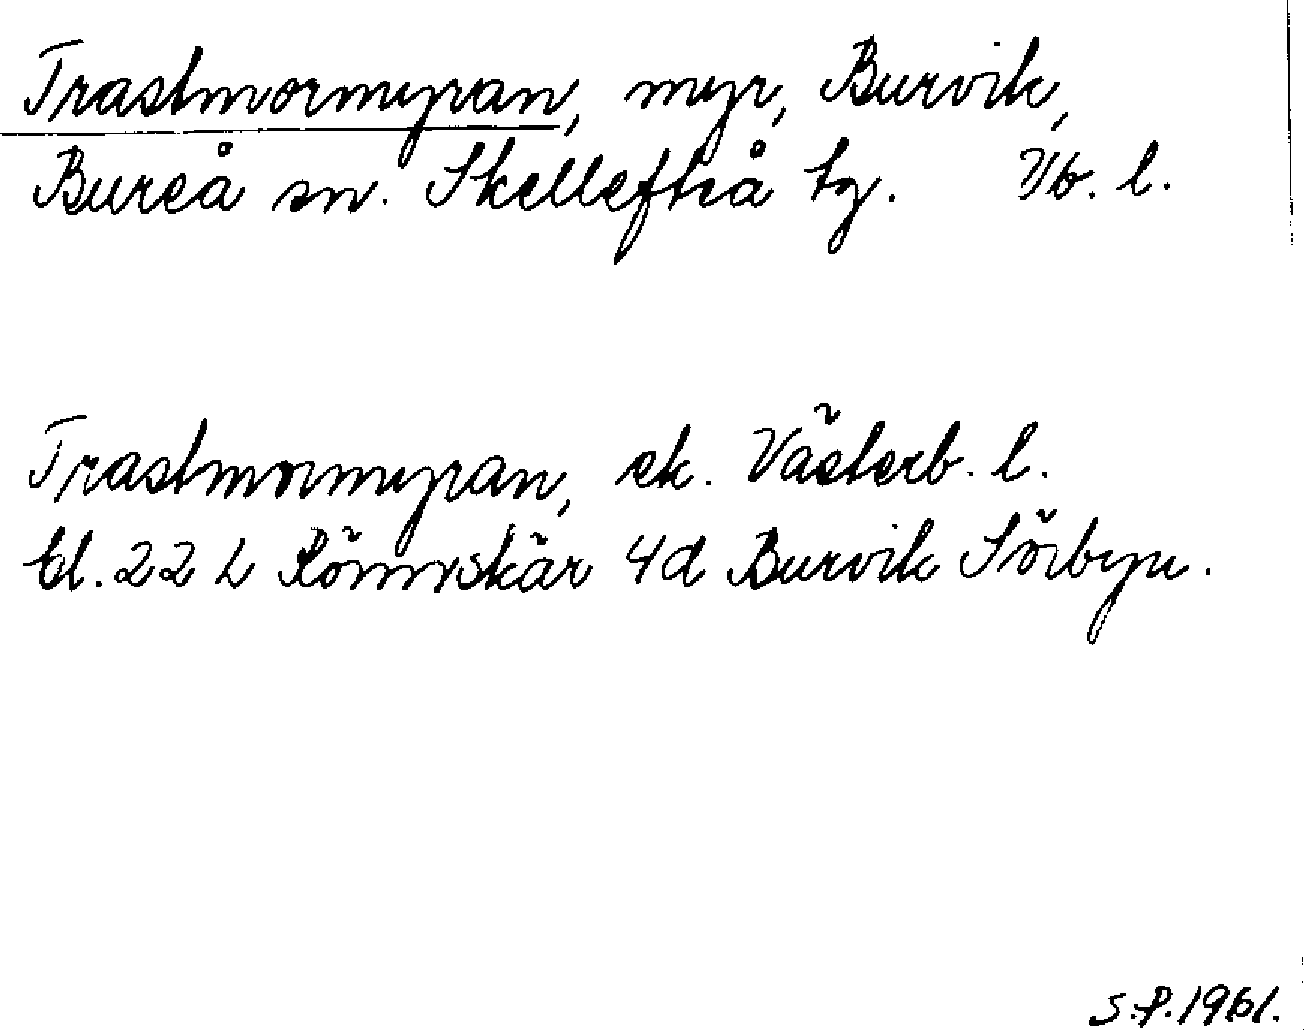 Trastmormyran, myr, Burvik,
Bureå sn. Skellefteå tg. Vb. l.
Trastmormyran, ek. Västerb. l.
bl. 22 L Rönnskär 4d Burvik Sörbyn.
S.P. 1961.